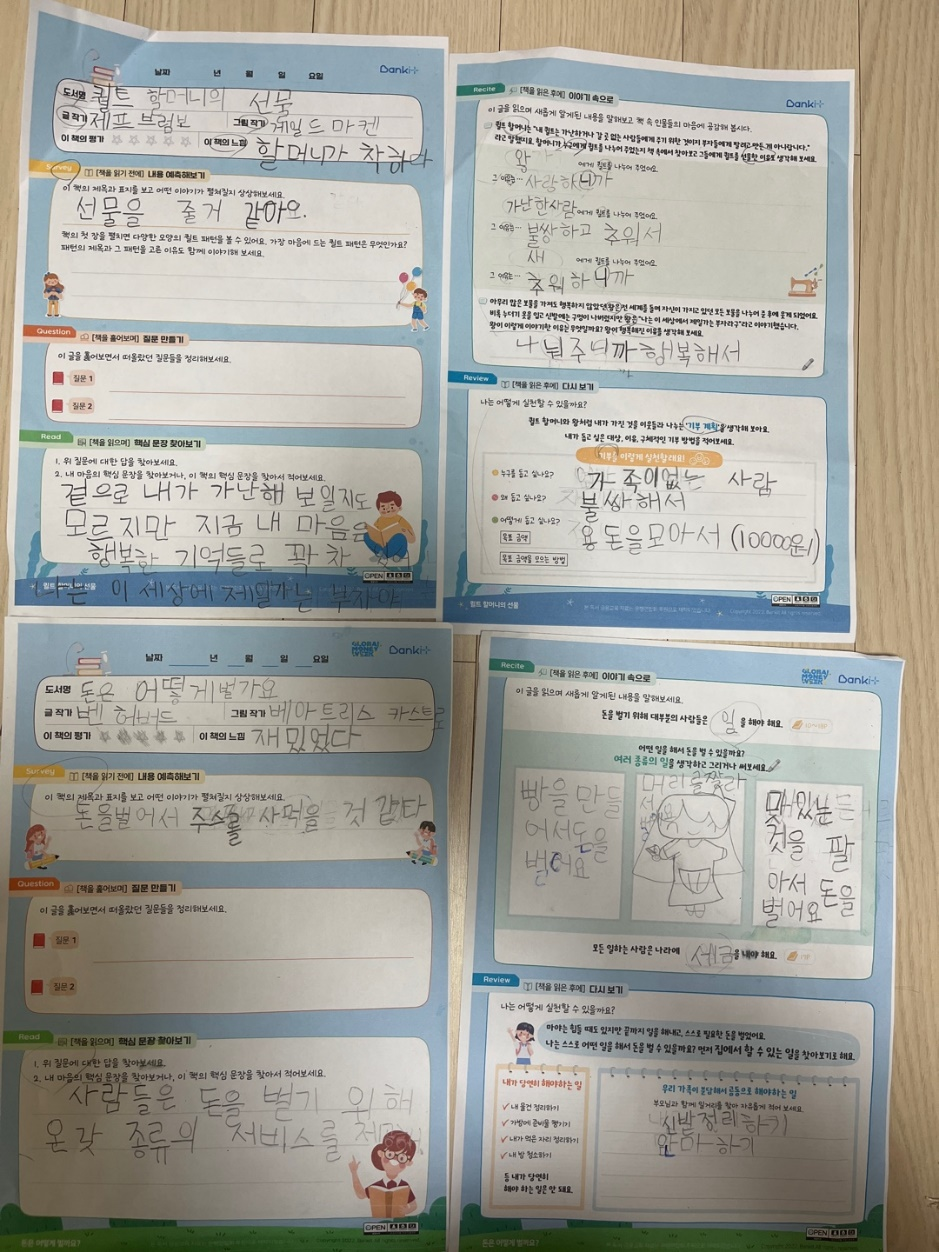 날짜 년 월 일 요일
Banki+
도서명 퀼트 할머니의 선물
글 작가 제프 브럼보 그림 작가 게일 드 마켄
이 책의 평가 이 책의 느낌 할머니가 착하다
Survey [책을 읽기 전에] 내용 예측해보기
이 책의 제목과 표지를 보고 어떤 이야기가 펼쳐질지 상상해보세요.
선물을 줄거 같아요.
책의 첫 장을 펼치면 다양한 모양의 퀼트 패턴을 볼 수 있어요. 가장 마음에 드는 퀼트 패턴은 무엇인가요?
패턴의 제목과 그 패턴을 고른 이유도 함께 이야기해 보세요.
Question [책을 훑어보며] 질문 만들기
이 글을 훑어보면서 떠올랐던 질문들을 정리해보세요.
질문 1
질문 2
Read [책을 읽으며] 핵심 문장 찾아보기
1. 위 질문에 대한 답을 찾아보세요.
2. 내 마음의 핵심 문장을 찾아보거나, 이 책의 핵심 문장을 찾아서 적어보세요.
겉으로 내가 가난해 보일지도
모르지만 지금 내 마음은
행복한 기억들로 꽉 차
나는 이 세상에 제일가는 부자야
퀼트 할머니의 선물
OPEN
Recite [책을 읽은 후에] 이야기 속으로
Banki+
이 글을 읽으며 새롭게 알게된 내용을 말해보고 책 속 인물들의 마음에 공감해 봅시다.
퀼트 할머니는 "내 퀼트는 가난하거나 갈 곳 없는 사람들에게 주기 위한 것이지 부자들에게 팔려고 만든 게 아니랍니다."
라고 말했지요. 할머니가 누구에게 퀼트를 나누어 주었는지 책 속에서 찾아보고 그들에게 퀼트를 선물한 이유도 생각해 보세요.
왕 에게 퀼트를 나누어 주었어요.
그 이유는… 사랑하니까
가난한사람 에게 퀼트를 나누어 주었어요.
그 이유는… 불쌍하고 추워서
새 에게 퀼트를 나누어 주었어요.
그 이유는… 추워하니까
아무리 많은 보물을 가져도 행복하지 않았던 왕은 전 세계를 돌며 자신이 가지고 있던 모든 보물을 나누어 준 후에 웃게 되었어요.
비록 누더기 옷을 입고 신발에는 구멍이 나버렸지만 왕은 "나는 이 세상에서 제일가는 부자라구"라고 이야기했습니다.
왕이 이렇게 이야기한 이유는 무엇일까요? 왕이 행복해진 이유를 생각해 보세요.
나눠주니까 행복해서
Review [책을 읽은 후에] 다시 보기
나는 어떻게 실천할 수 있을까요?
퀼트 할머니와 왕처럼 내가 가진 것을 이웃들과 나누는 '기부 계획'을 생각해 보아요.
내가 돕고 싶은 대상, 이유, 구체적인 기부 방법을 적어보세요.
기부를 이렇게 실천할래요!
누구를 돕고 싶나요? 가족이없는 사람
왜 돕고 싶나요? 불쌍해서
어떻게 돕고 싶나요?
목표 금액 용돈을모아서 (10000원)
목표 금액을 모으는 방법
OPEN
퀼트 할머니의 선물
날짜 년 월 일 요일
GLOBAL MONEY WEEK Banki+
도서명 돈은 어떻게벌가요
글 작가 벤 허버드 그림 작가 베아트리스 카스트로
이 책의 평가 이 책의 느낌 재밌었다
Survey [책을 읽기 전에] 내용 예측해보기
이 책의 제목과 표지를 보고 어떤 이야기가 펼쳐질지 상상해보세요.
돈을벌어서 주스를 사먹을 것 같다
Question [책을 훑어보며] 질문 만들기
이 글을 훑어보면서 떠올랐던 질문들을 정리해보세요.
질문 1
질문 2
Read [책을 읽으며] 핵심 문장 찾아보기
1. 위 질문에 대한 답을 찾아보세요.
2. 내 마음의 핵심 문장을 찾아보거나, 이 책의 핵심 문장을 찾아서 적어보세요.
사람들은 돈을 벌기 위해
온갖 종류의 서비스를
OPEN
돈은 어떻게 벌까요?
Recite [책을 읽은 후에] 이야기 속으로
GLOBAL MONEY WEEK Banki+
이 글을 읽으며 새롭게 알게된 내용을 말해보세요.
돈을 벌기 위해 대부분의 사람들은 일 을 해야 해요.
어떤 일을 해서 돈을 벌 수 있을까요?
여러 종류의 일을 생각하고 그리거나 써보세요.
빵을 만들
어서돈을
벌어요
머리를짤라
서
맛있는
것을 팔
아서 돈을
벌어요
모든 일하는 사람은 나라에 세금 을 내야 해요.
Review [책을 읽은 후에] 다시 보기
나는 어떻게 실천할 수 있을까요?
마야는 힘들 때도 있지만 끝까지 일을 해내고, 스스로 필요한 돈을 벌었어요.
나는 스스로 어떤 일을 해서 돈을 벌 수 있을까요? 먼저 집에서 할 수 있는 일을 찾아보기로 해요.
내가 당연히 해야하는 일
내 물건 정리하기
가방에 준비물 챙기기
내가 먹은 자리 정리하기
내 방 청소하기
등 내가 당연히
해야 하는 일은 안 돼요.
우리 가족이 분담해서 공동으로 해야하는 일
부모님과 함께 일거리를 찾아 자유롭게 적어 보세요.
신발정리하기
안마하기
OPEN
돈은 어떻게 벌까요?